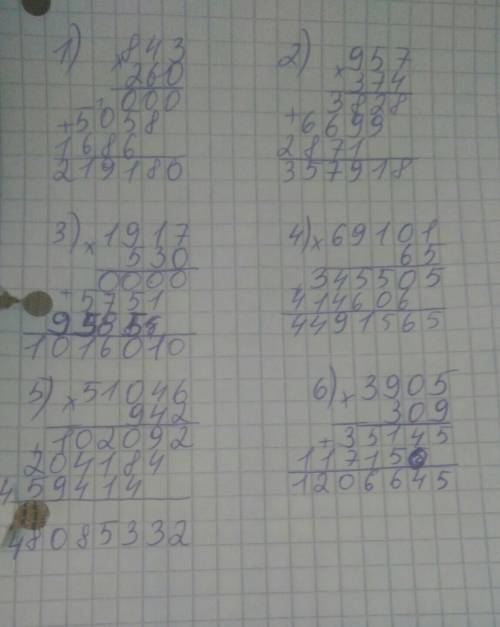 1) × 843
260
000
+ 5058
1686
219180
2) × 957
374
3828
+ 6699
2871
357918
3) × 1917
530
0000
+ 5751
9585
1016010
4) × 69101
65
+ 345505
414606
4491565
5) × 51046
942
+ 102092
204184
459414
48085332
6) × 3905
309
+ 35145
117150
1206645